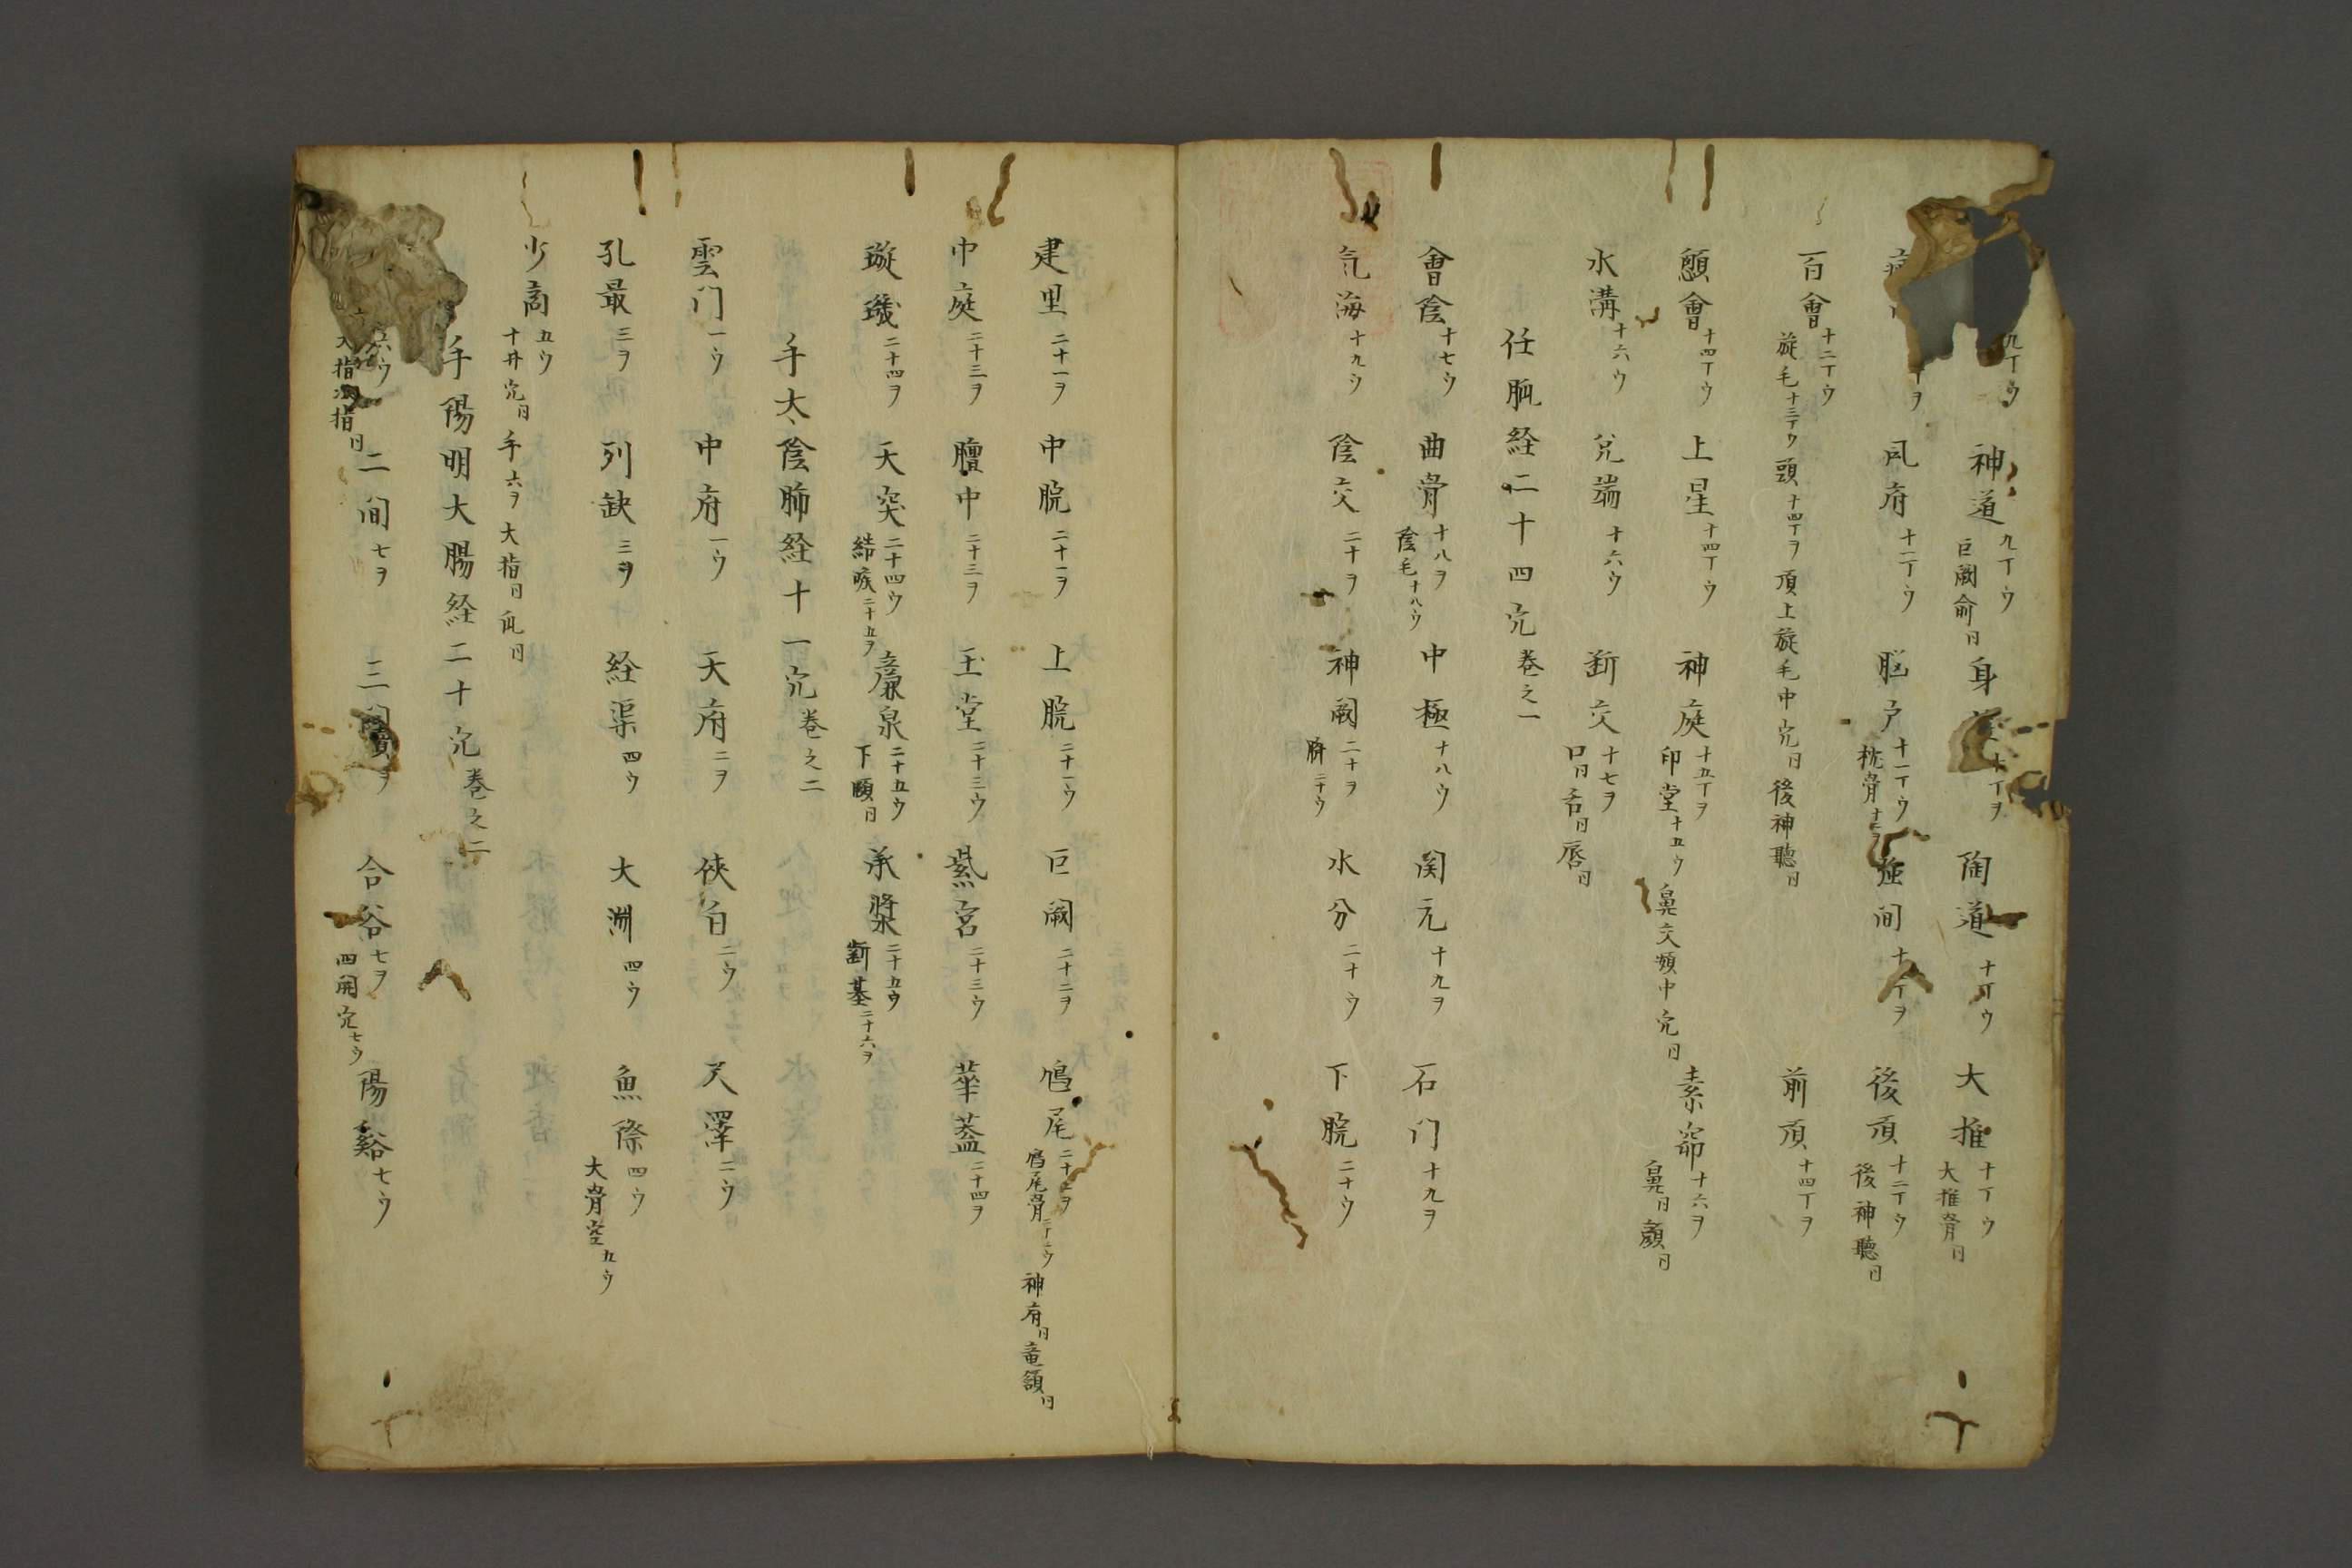 九丁ウ 神道 九丁ウ 巨闕俞 日 身 十丁ヲ 陶道 十丁ウ 大推 十丁ウ 大推骨 日
風府 十一丁ウ 脳户 十一丁ウ 枕骨 強间 十二丁ヲ 後頂 十二丁ウ 後神聽 日
百會 十二丁ウ 旋毛 十三丁ウ 頭 十四丁ヲ 頂上旋毛中宂 日 後神聽 日 前頂 十四丁ヲ
顖會 十四丁ウ 上星 十四丁ウ 神庭 十五丁ヲ 印堂 十五ウ 鼻交頞中宂 日 素窌 十六ヲ 鼻 日 顔 日
水溝 十六ウ 兌端 十六ウ 断交 十七ヲ 口 日 舌 日 唇 日
任脈経二十四宂 巻之一
會陰 十七ウ 曲骨 十八ヲ 陰毛 十八ウ 中極 十八ウ 関元 十九ヲ 石门 十九ヲ
気海 十九ウ 陰交 二十ヲ 神闕 二十ヲ 臍 二十ウ 水分 二十ウ 下脘 二十ウ
建里 二十一ヲ 中脘 二十一ヲ 上脘 二十一ウ 巨闕 二十二ヲ 鳩尾 二十二ヲ 鳩尾骨 二十二ウ 神府 日 竜頷 日
中庭 二十三ヲ 膻中 二十三ヲ 玉堂 二十三ウ 紫宮 二十三ウ 華蓋 二十四ヲ
璇璣 二十四ヲ 天突 二十四ウ 結喉 二十五ヲ 廉泉 二十五ウ 下頤 日 承漿 二十五ウ 断基 二十六ヲ
手太陰肺経十一宂 巻之二
雲门 一ウ 中府 一ウ 天府 二ヲ 侠白 二ウ 尺澤 二ウ
孔最 三ヲ 列缺 三ヲ 経渠 四ウ 大渊 四ウ 魚際 四ウ 大骨空 五ウ
少商 五ウ 十井宂 日 手 六ヲ 大指 日 爪 日
手陽明大腸経二十宂 巻之二
六ウ 大指次指 日 二间 七ヲ 三间 合谷 七ヲ 四関宂 七ウ 陽谿 七ウ